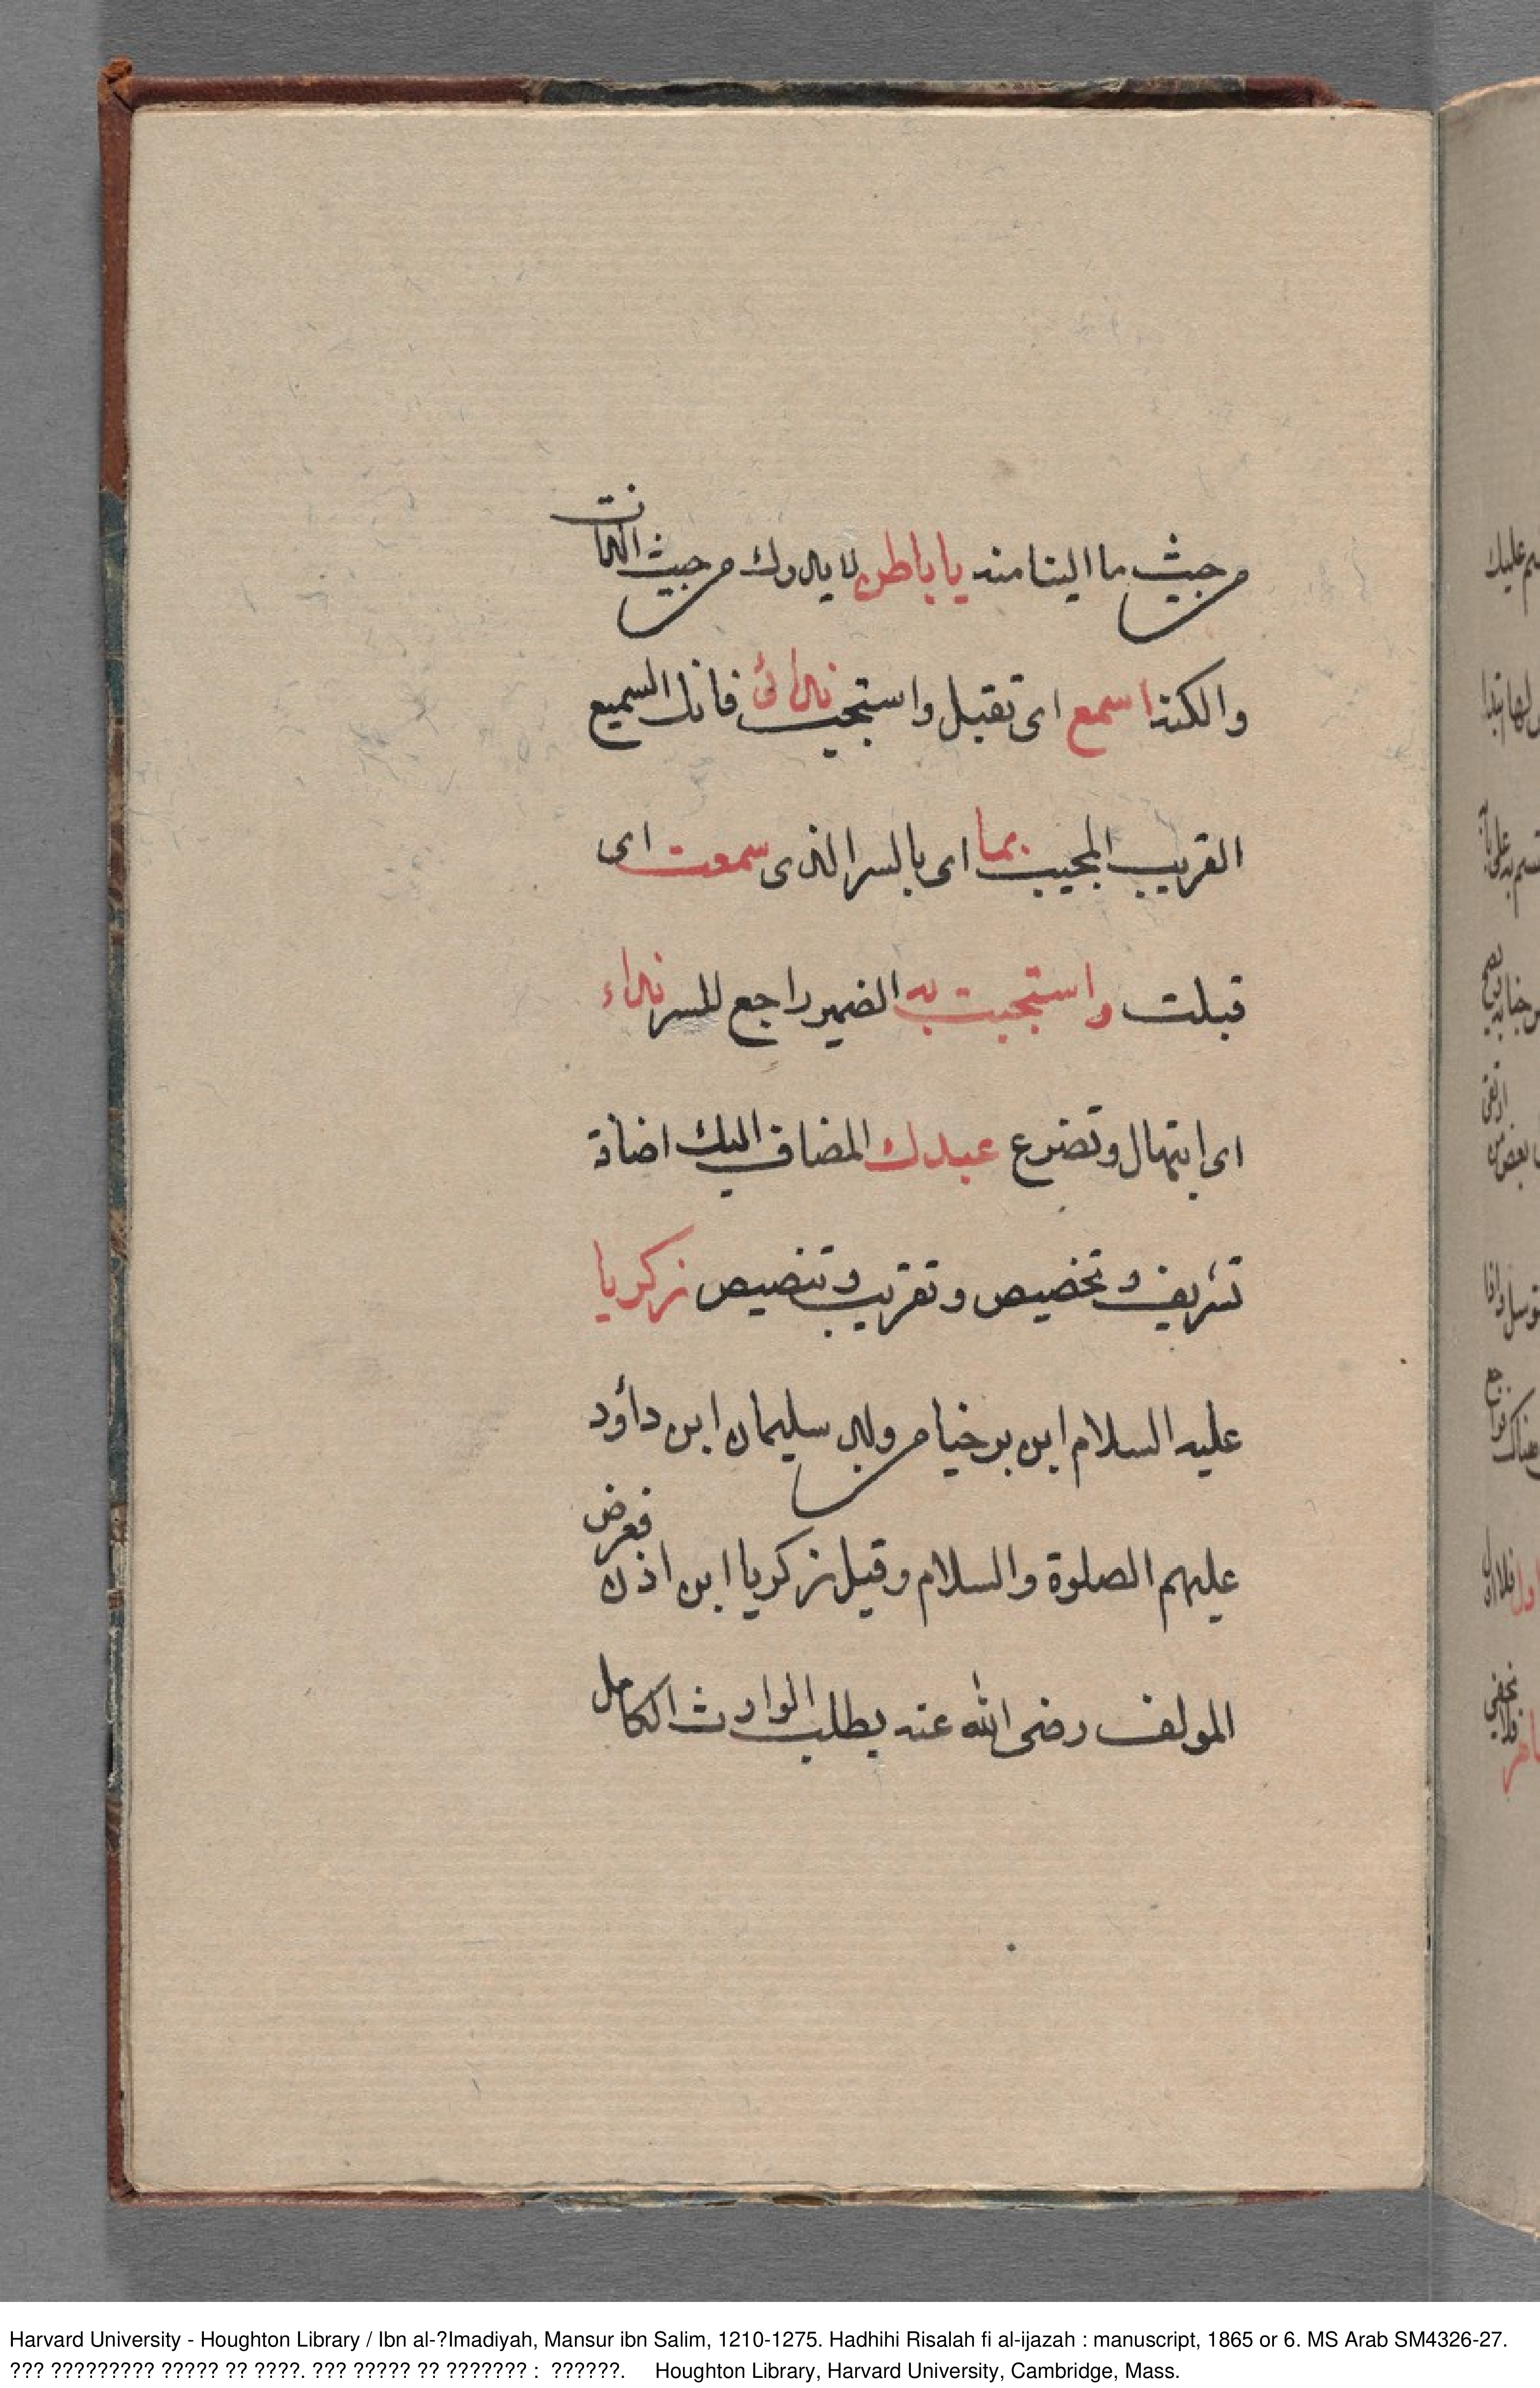 من حيث ما الينا منه يا باطن لا يدرك من حيث الذات
والكنه اسمع اى تقبل واستجب ندائى فانك السميع
القريب المجيب بما اى بالسر الذى سمعت اى
قبلت واستجبت به الضمير راجع للسر نداء
اى ابتهال وتضرع عبدك المضاف اليك اضافة
تشريف وتخصيص وتقريب وتنصيص زكريا
عليه السلام ابن برخيا من ولد سليمان ابن داؤد
عليهم الصلوة والسلام وقيل زكريا ابن اذن فعرض
المولف رضى الله عنه بطلب الوارث الكامل
Harvard University - Houghton Library / Ibn al-?Imadiyah, Mansur ibn Salim, 1210-1275. Hadhihi Risalah fi al-ijazah : manuscript, 1865 or 6. MS Arab SM4326-27.
??? ????????? ????? ?? ????. ??? ????? ?? ??????? : ??????. Houghton Library, Harvard University, Cambridge, Mass.